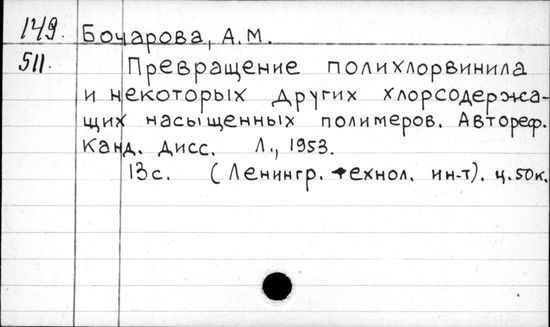 149. Бочарова, А.М.
511. Превращение полихлорвинила
и некоторых других хлорсодержа-
щих насыщенных полимеров. Автореф.
канд. дисс. Л., 1953.
13с. (Ленингр. технол. ин-т). ц.50к.